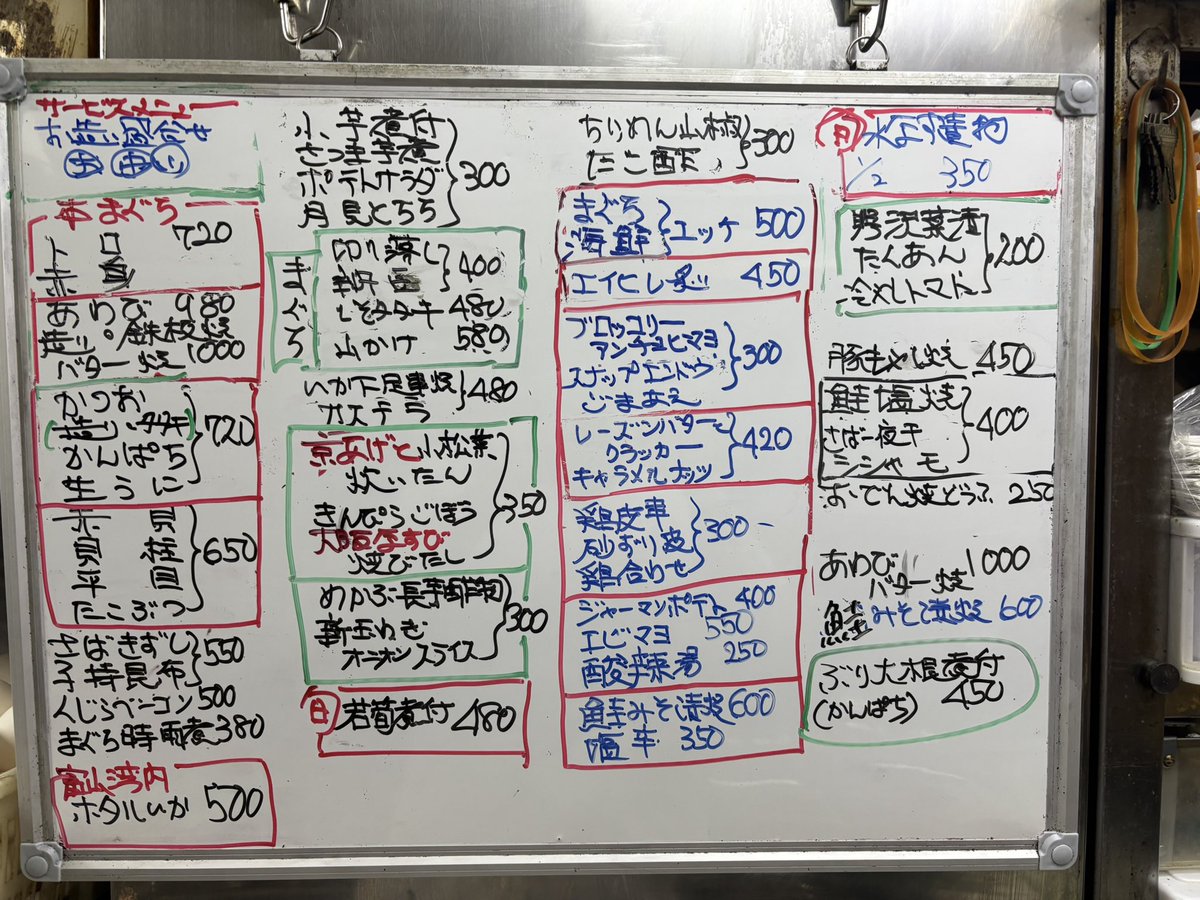 サービスメニュー
お造り盛合せ
本まぐろ
トロ 720
赤身
あわび 980
造り・鉄板焼
バター焼 1000
かつお
造り・タタキ 720
かんぱち
生うに
赤貝
貝柱 650
平貝
たこぶつ
さばきずし 550
子持昆布
くじらベーコン 500
まぐろ時雨煮 380
富山湾内
ホタルいか 500
小芋煮付
さつま芋煮 300
ポテトサラダ
月見とろろ
まぐろ
切り落し 400
しそタタキ 480
山かけ 580
いか下足串焼 480
カステラ
京あげと小松菜
炊いたん 350
きんぴらごぼう
大阪なすび
煮びたし
めかぶ長芋酢物 300
新玉ねぎ
オニオンスライス
旬 若筍煮付 480
ちりめん山椒 300
たこ酢
まぐろ ユッケ 500
海鮮
エイヒレ炙 450
ブロッコリー
アンチョビマヨ 300
スナップエンドウ
ごまあえ
レーズンバターと
クラッカー 420
キャラメルナッツ
鶏皮串
砂ずり 300-
鶏合わせ
ジャーマンポテト 400
エビマヨ 550
酸辣湯 250
鮭みそ漬焼 600
塩辛 350
旬 水なす漬物
1/2 350
野沢菜漬
たくあん 200
冷やしトマト
豚もやし炒 450
鮭塩焼
さば一夜干 400
シシャモ
おでん焼どうふ 250
あわび
バター焼 1000
鮭みそ漬焼 600
ぶり大根煮付
(かんぱち) 450